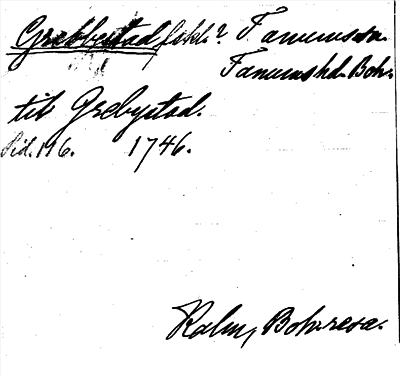 Grebbestad fskl.? Tanums sn.
Tanums hd. Boh.
till Grebystad.
Sid. 116. 1746.
Kalm, Boh. resa.